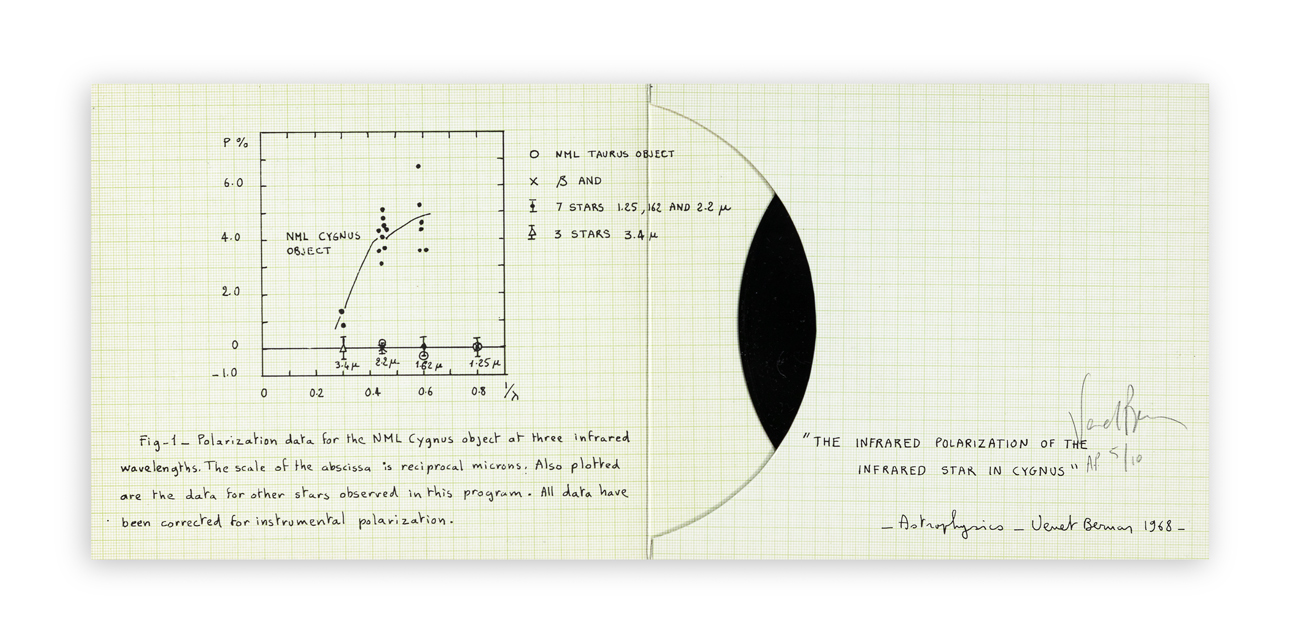 P %
6.0
4.0
2.0
0
-1.0
NML CYGNUS
OBJECT
3.4 μ 2.2 μ 1.62 μ 1.25 μ
0 0.2 0.4 0.6 0.8 1/λ
O NML TAURUS OBJECT
X β AND
7 STARS 1.25, 162 AND 2.2 μ
3 STARS 3.4 μ
Fig-1_ Polarization data for the NML Cygnus object at three infrared
wavelengths. The scale of the abscissa is reciprocal microns. Also plotted
are the data for other stars observed in this program. All data have
been corrected for instrumental polarization.
"THE INFRARED POLARIZATION OF THE
INFRARED STAR IN CYGNUS"
AP 5/10
_ Astrophysics _ Venet Bernar 1968 _